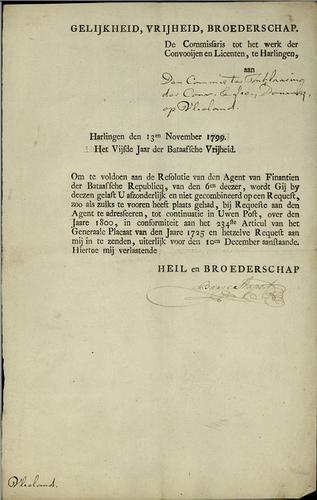 GELIJKHEID, VRIJHEID, BROEDERSCHAP.
De Commissaris tot het werk der
Convooijen en Licenten, te Harlingen,
aan
Den Commies ter
der Conv. &
op Vlieland.
Harlingen den 13en November 1799.
Het Vijfde Jaar der Bataafsche Vrijheid.
Om te voldoen aan de Resolutie van den Agent van Finantien
der Bataafsche Republicq, van den 6en deezer, wordt Gij by
deezen gelast U afzonderlijk en niet gecombineerd op een Request,
zoo als zulks te vooren heeft plaats gehad, bij Requeste aan den
Agent te adresseeren, tot continuatie in Uwen Post, over den
Jaare 1800, in conformiteit aan het 234ste Articul van het
Generaale Placaat van den Jaare 1725 en hetzelve Request aan
mij in te zenden, uiterlijk voor den 10en December aanstaande.
Hiertoe mij verlaatende
HEIL en BROEDERSCHAP
Vlieland.